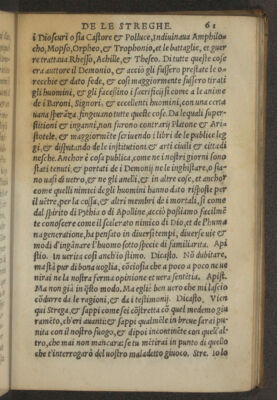 DE LE STREGHE. 61
i Dioscuri o sia Castore & Polluce, Indiuinaua Amphilo
cho, Mopso, Orpheo, & Trophonio, et le battaglie, et guer
re trattaua Rhesso, Achille, & Theseo. Di tutte queste cose
era auttore il Demonio, & acciò gli fussero prestate le o-
recchie & dato fede, & così maggiormente fussero tirati
gli huomini, & gli facessino i sacrificij come a le anime
de i Baroni, Signori, & eccellenti huomini, con una certa
uana speranza, fingeua no tutte queste cose. Da le quali super
stitioni et inganni, non furono contrarij Platone & Ari-
stotele, & maggiormẽte scriuendo i libri de le publice leg
gi, & disputando de le institutioni et arti ciuili & cittadi
nesche. Anchor è cosa publica, come ne i nostri giorni sono
stati tenuti, & portati de i Demonij ne le inghistare, o sia-
no uasi di uetro, & ne gli anelli, & in altre cose, et anchor
come quelli nimici degli huomini hanno dato risposte per
il uẽtre, per la coscia, & altri membri de i mortali, sì come
dal spirito di Pythia o di Apolline, acciò possiamo facilmẽ
te conoscere come il scelerato nimico di Dio, et de l'huma
na generatione, ha pensato in diuersi tempi, diuerse uie &
modi d'ingãnare l'huomo sotto specie di familiarità. Api
stio. In uerità così anch'io stimo. Dicasto. Nõ dubitare,
ma stà pur di bona uoglia, cõciosia che a poco a poco ne ue
nirai ne la nostra ferma opinione et uera sentẽtia. Apist.
Ma non già in q̃sto modo. Ma egli è ben uero che mi lascio
cõdurre da le ragioni, & da i testimonij. Dicasto. Vien
qui Strega, & sappi come sei cõstretta cõ quel medemo giu
ramẽto, ch'eri auanti: & sappi qualmẽte in breue sarai pu-
nita con il nostro fuoco, & dipoi incontinẽte con quell'al-
tro, che mai non mancarà: se tu mẽtirai in punto di quello
che t'interrogarò del uostro maladetto giuoco. Stre. Io lo